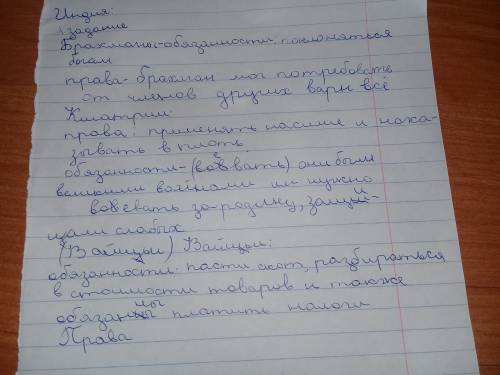 Индия:
1 задание
Брахманы-обязанности: поклоняться
богам
права-брахман мог потребовать
от членов других варн всё
Кшатрии:
права: применять насилие и нака-
зывать в плоть.
обязанности-(воевать) они были
великими воинами им нужно
воевать за-родину, защи-
щали слабых
(Вайщьи) Вайщьи:
обязанности: пасти скот, разбираться
в стоимости товаров и также
обязаны платить налоги
Права